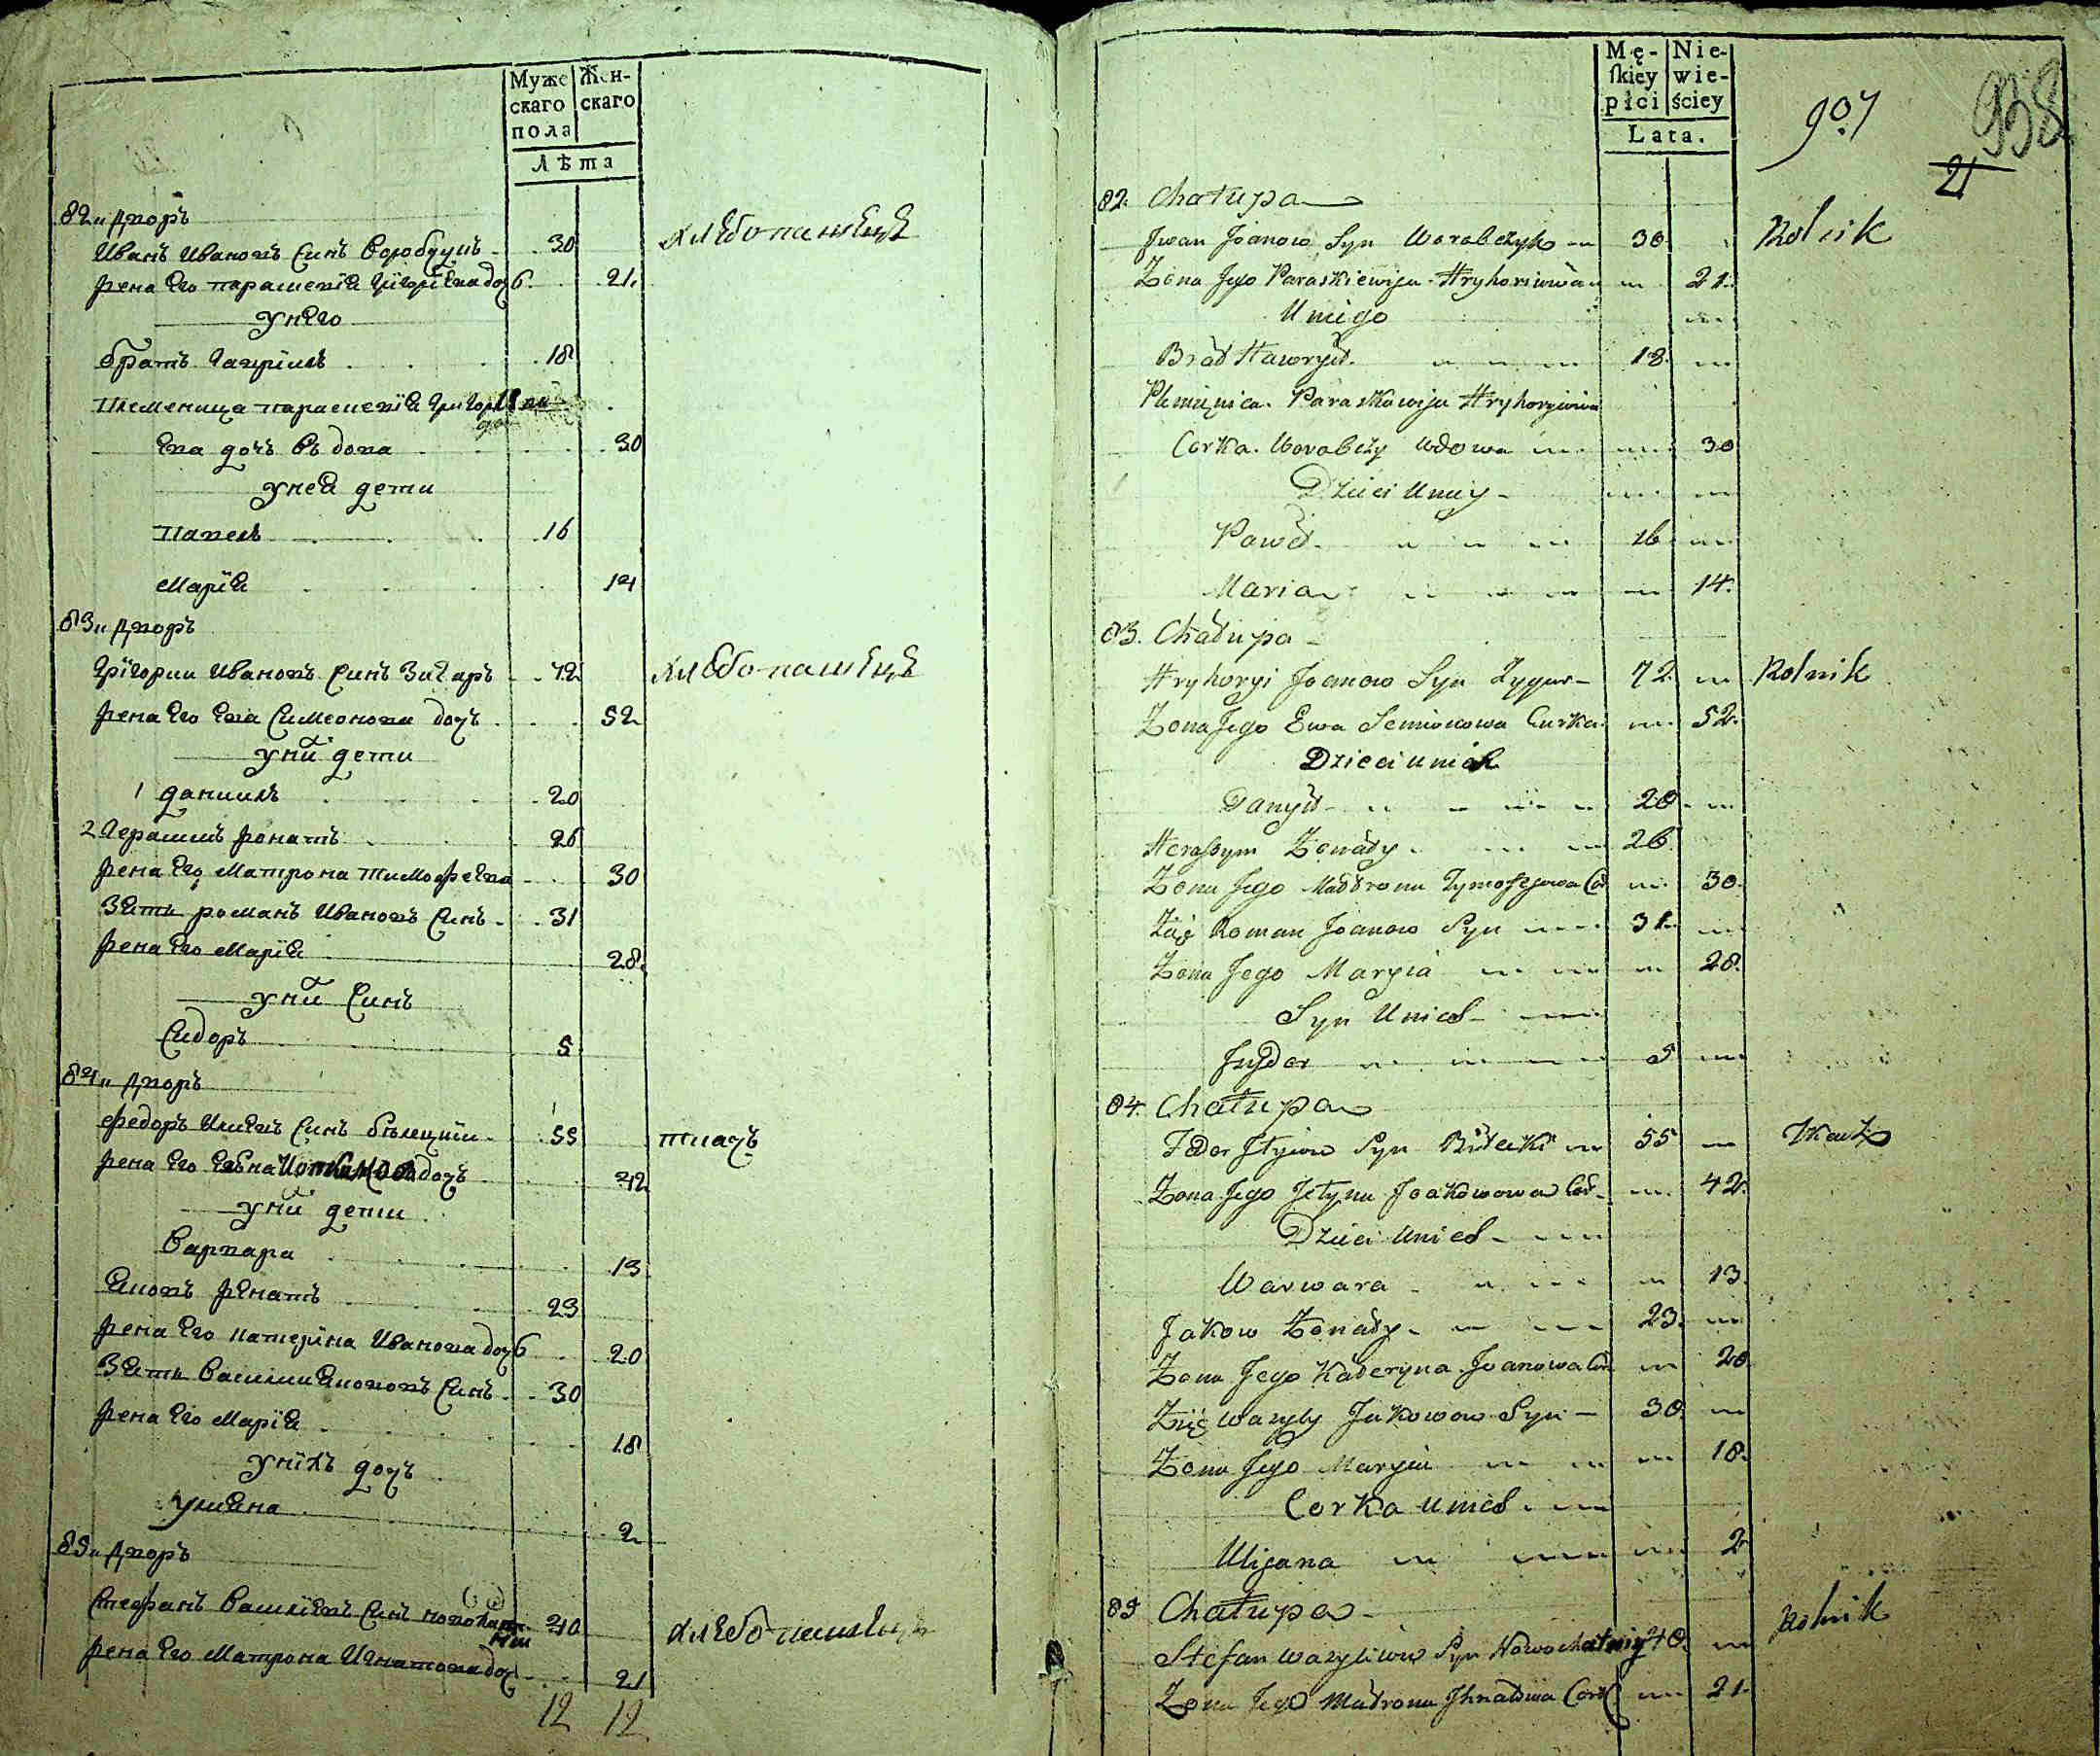 Муже
скаго
пола
Жен-
скаго
Лѣта
82„ Дворъ
Иванъ Ивановъ Синъ Воробчукъ 30 хлѣбопашецъ
жена Его параскевіа Григоріева доч 21
у него
братъ Гавріилъ 18
племеница параскевіа
Ева дочъ въдова 30
у неа дети
Павелъ 16
Маріа 14
83„ Дворъ
Григории Ивановъ Синъ Зигаръ 72 хлѣбопашецъ
жена Его Ева Симеонова дочъ 52
у них дети
1 даниилъ 20
2 Герасимъ женатъ 26
жена Его Матрона Тимофеева 30
Зять романъ Ивановъ Синъ 31
жена Его Маріа 28
у них Синъ
Сидоръ 5
84„ Дворъ
федоръ Илиевъ Синъ Бѣлецкии 55 ткачъ
жена Его дочъ 42
у них дети
Варвара 13
Яковъ женатъ 23
жена Его катерина Иванова доч 20
Зять Василии Яковов Синъ 30
жена Его Маріа 18
у нихъ дочъ
Улияна 2
85„ Дворъ
Стефанъ Василіевъ Синъ новохатни 40 хлебопашецъ
жена Его Матрона Игнатова доч 21
12 12
Mę-
skiey
płci
Nie-
wie-
ściey
Lata.
907
938
21
82. Chałupa
Jwan Joanow Syn Worobczyk 30 Rolnik
Żona Jego Paraskiewija Hryhoriwna 21.
U niego
Brat Hawryił 18.
Plemięnica Paraskewija Hryhoryiwna
Corka Worobczy Wdowa 30
Dzieci U niey
Paweł 16
Maria 14.
83. Chałupa
Hryhoryi Joanow Syn Zygar 72 Rolnik
Żona Jego Ewa Semionowa Curka 52.
Dzieci u nich
Danyił 20
Herasym Żonaty 26
Żona Jego Matrona Tymofejowa Co 30.
Zięć Roman Joanow Syn 31
Żona Jego Maryia 28.
Syn U nich
Sydor 5
84. Chałupa
Fedor Syn Bilecki 55 Tkacz
Żona Jego Jełyna Cor 42.
Dzieci U nich
Warwara 13.
Jakow Żonaty 23.
Żona Jego Kateryna Joanowa Cor 20
Zięć Wasyly Jakowow Syn 30.
Żona Jego Maryia 18.
Corka U nich
Ulijana 2
85 Chałupa
Stefan Wasyliow Syn Nowochatniy 40. Rolnik
Żona Jego Matrona Ihnatowa Cork 21.